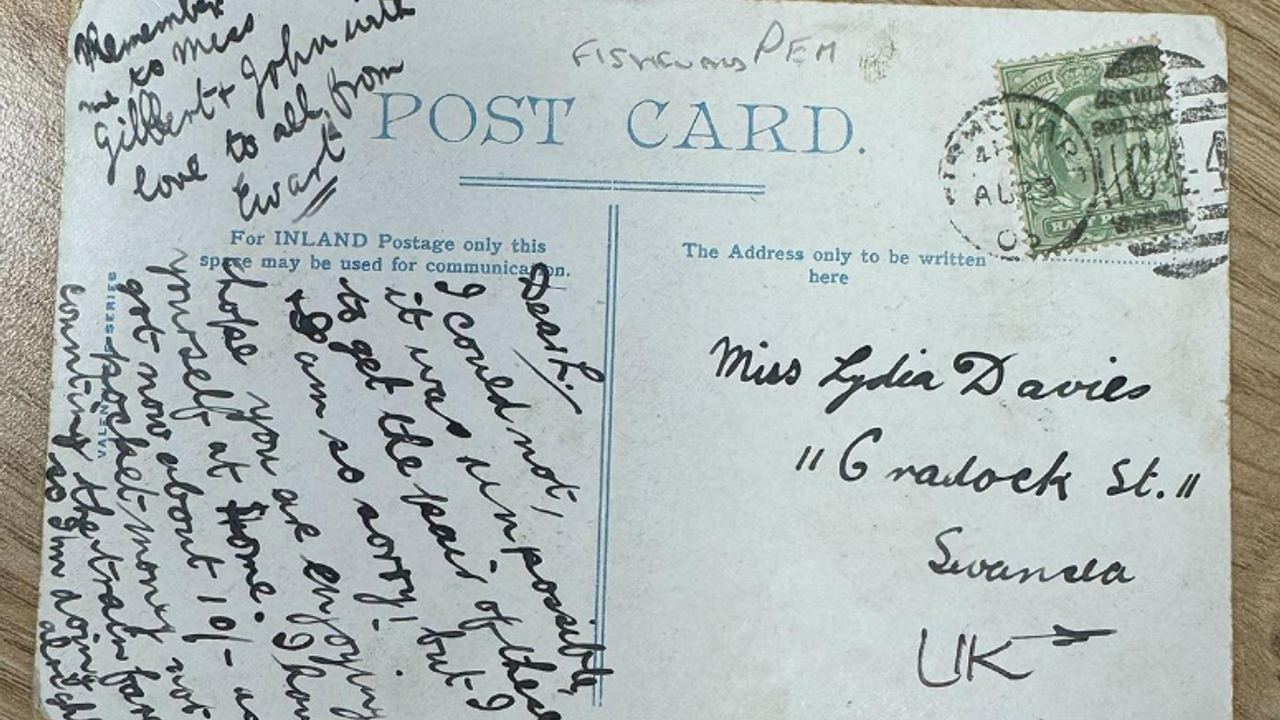 Remember
me to Miss
Gilbert + John with
love to all from
Ewart
PEM
POST CARD.
For INLAND Postage only this
space may be used for communication.
The Address only to be written
here
Dear L.
I could not,
it was unpossible
to get the pair of these
but I
am so sorry!
hope you are enjoying
yourself at Home. I
got now about 10/- as
pocket-money not
counting the train
so I'm doing
SERIES
AU 23
HALF
Miss Lydia Davies
"Cradock St."
Swansea
UK